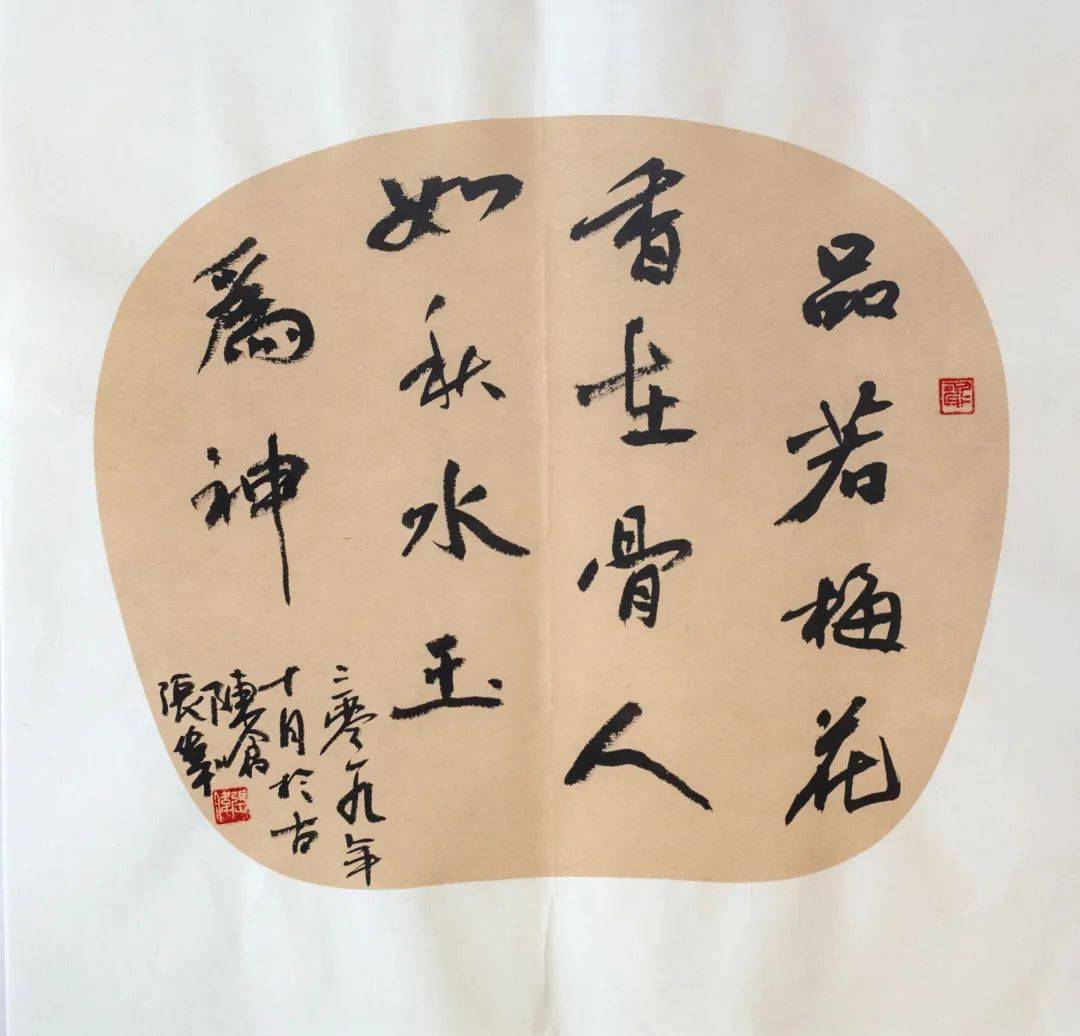 品若梅花
香在骨人
如秋水玉
爲神
二零一九年
十月於古
陳倉
張